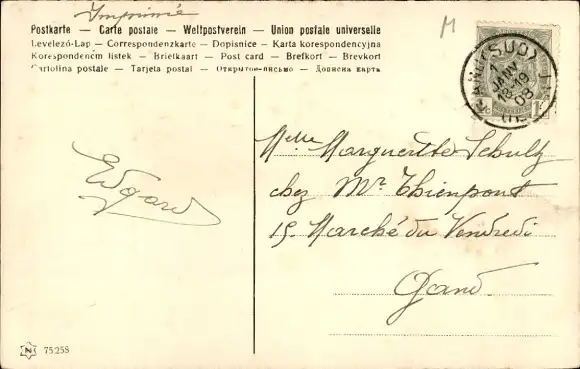 Imprimé
M
Postkarte — Carte postale — Weltpostverein — Union postale universelle
Levelező-Lap — Correspondenzkarte — Dopisnice — Karta korespondencyjna
Korespondenční lístek — Briefkaart — Post card — Brefkort — Brevkort
Cartolina postale — Tarjeta postal — Открытое-письмо — Дописна карта
(SUD)
1
JANV
18-19
08
Edgard
Melle Marguerite Schultz
chez Mr Thienpont
15. Marché du Vendredi
Gand
N 75258